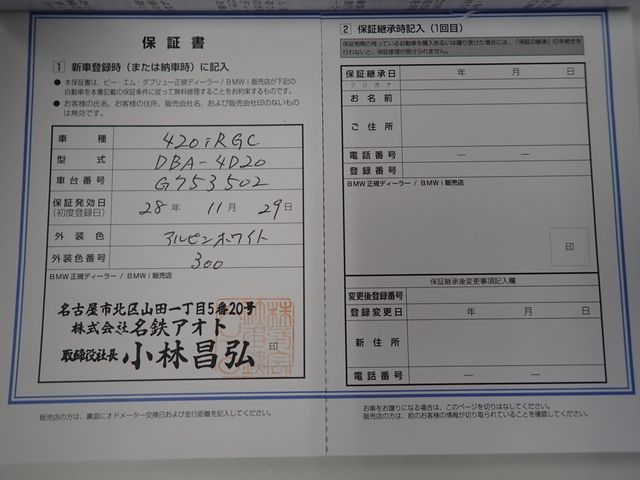 保証書
1 新車登録時(または納車時)に記入
● 本保証書は、ビー・エム・ダブリュー正規ディーラー/BMWi販売店が下記の
自動車を本書記載の保証条件に従って無料修理することをお約束するものです。
● お客様の氏名、お客様の住所、販売会社名、および販売会社印のないもの
は無効です。
車種 420iRGC
型式 DBA-4D20
車台番号 G753502
保証発効日
(初度登録日) 28年 11月 29日
外装色 アルピンホワイト
外装色番号 300
BMW正規ディーラー / BMW i 販売店
名古屋市北区山田一丁目5番20号
株式会社 名鉄アオト
取締役社長 小林昌弘 印
販売店の方は、裏面にオドメーター交換日および走行距離を記入してください。
2 保証継承時記入(1回目)
保証期間の残っている自動車を購入あるいは譲り受けた場合には、「保証の継承」の手続きを
行わないと、保証修理が受けられません。
保証継承日 年 月 日
フリガナ
お名前
ご住所
電話番号 ― ―
登録番号
BMW正規ディーラー / BMW i 販売店
印
保証継承後変更事項記入欄
変更後登録番号
登録変更日 年 月 日
新住所
電話番号 ― ―
お車をお譲りになる場合は、このページを切りはなしてください。
販売店の方は、前のお客様の情報が切り取られていることを確認してください。